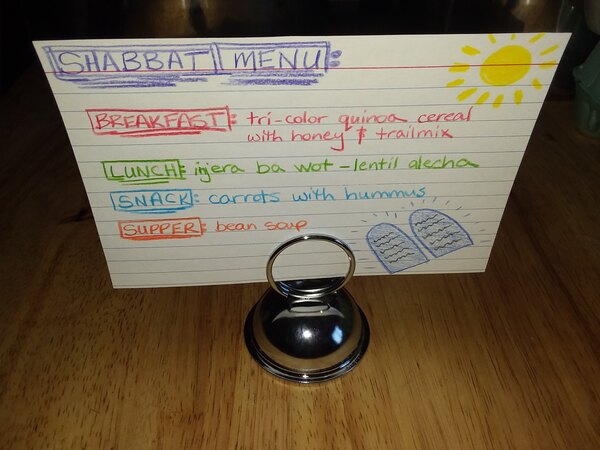 SHABBAT MENU:
BREAKFAST: tri-color quinoa cereal
with honey & trailmix
LUNCH: injera ba wot - lentil alecha
SNACK: carrots with hummus
SUPPER: bean soup